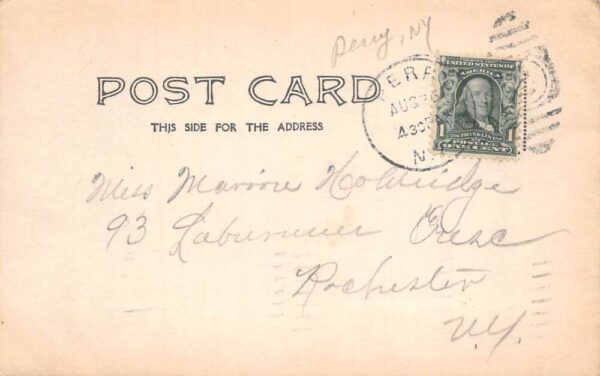 Perry, NY
POST CARD
THIS SIDE FOR THE ADDRESS
PERRY
AUG 26
430P
N.Y.
UNITED STATES OF
AMERICA
1 FRANKLIN 1
POSTAGE
ONE CENT
Miss Marion Holdridge
93 Laburnum Cresc
Rochester
N.Y.